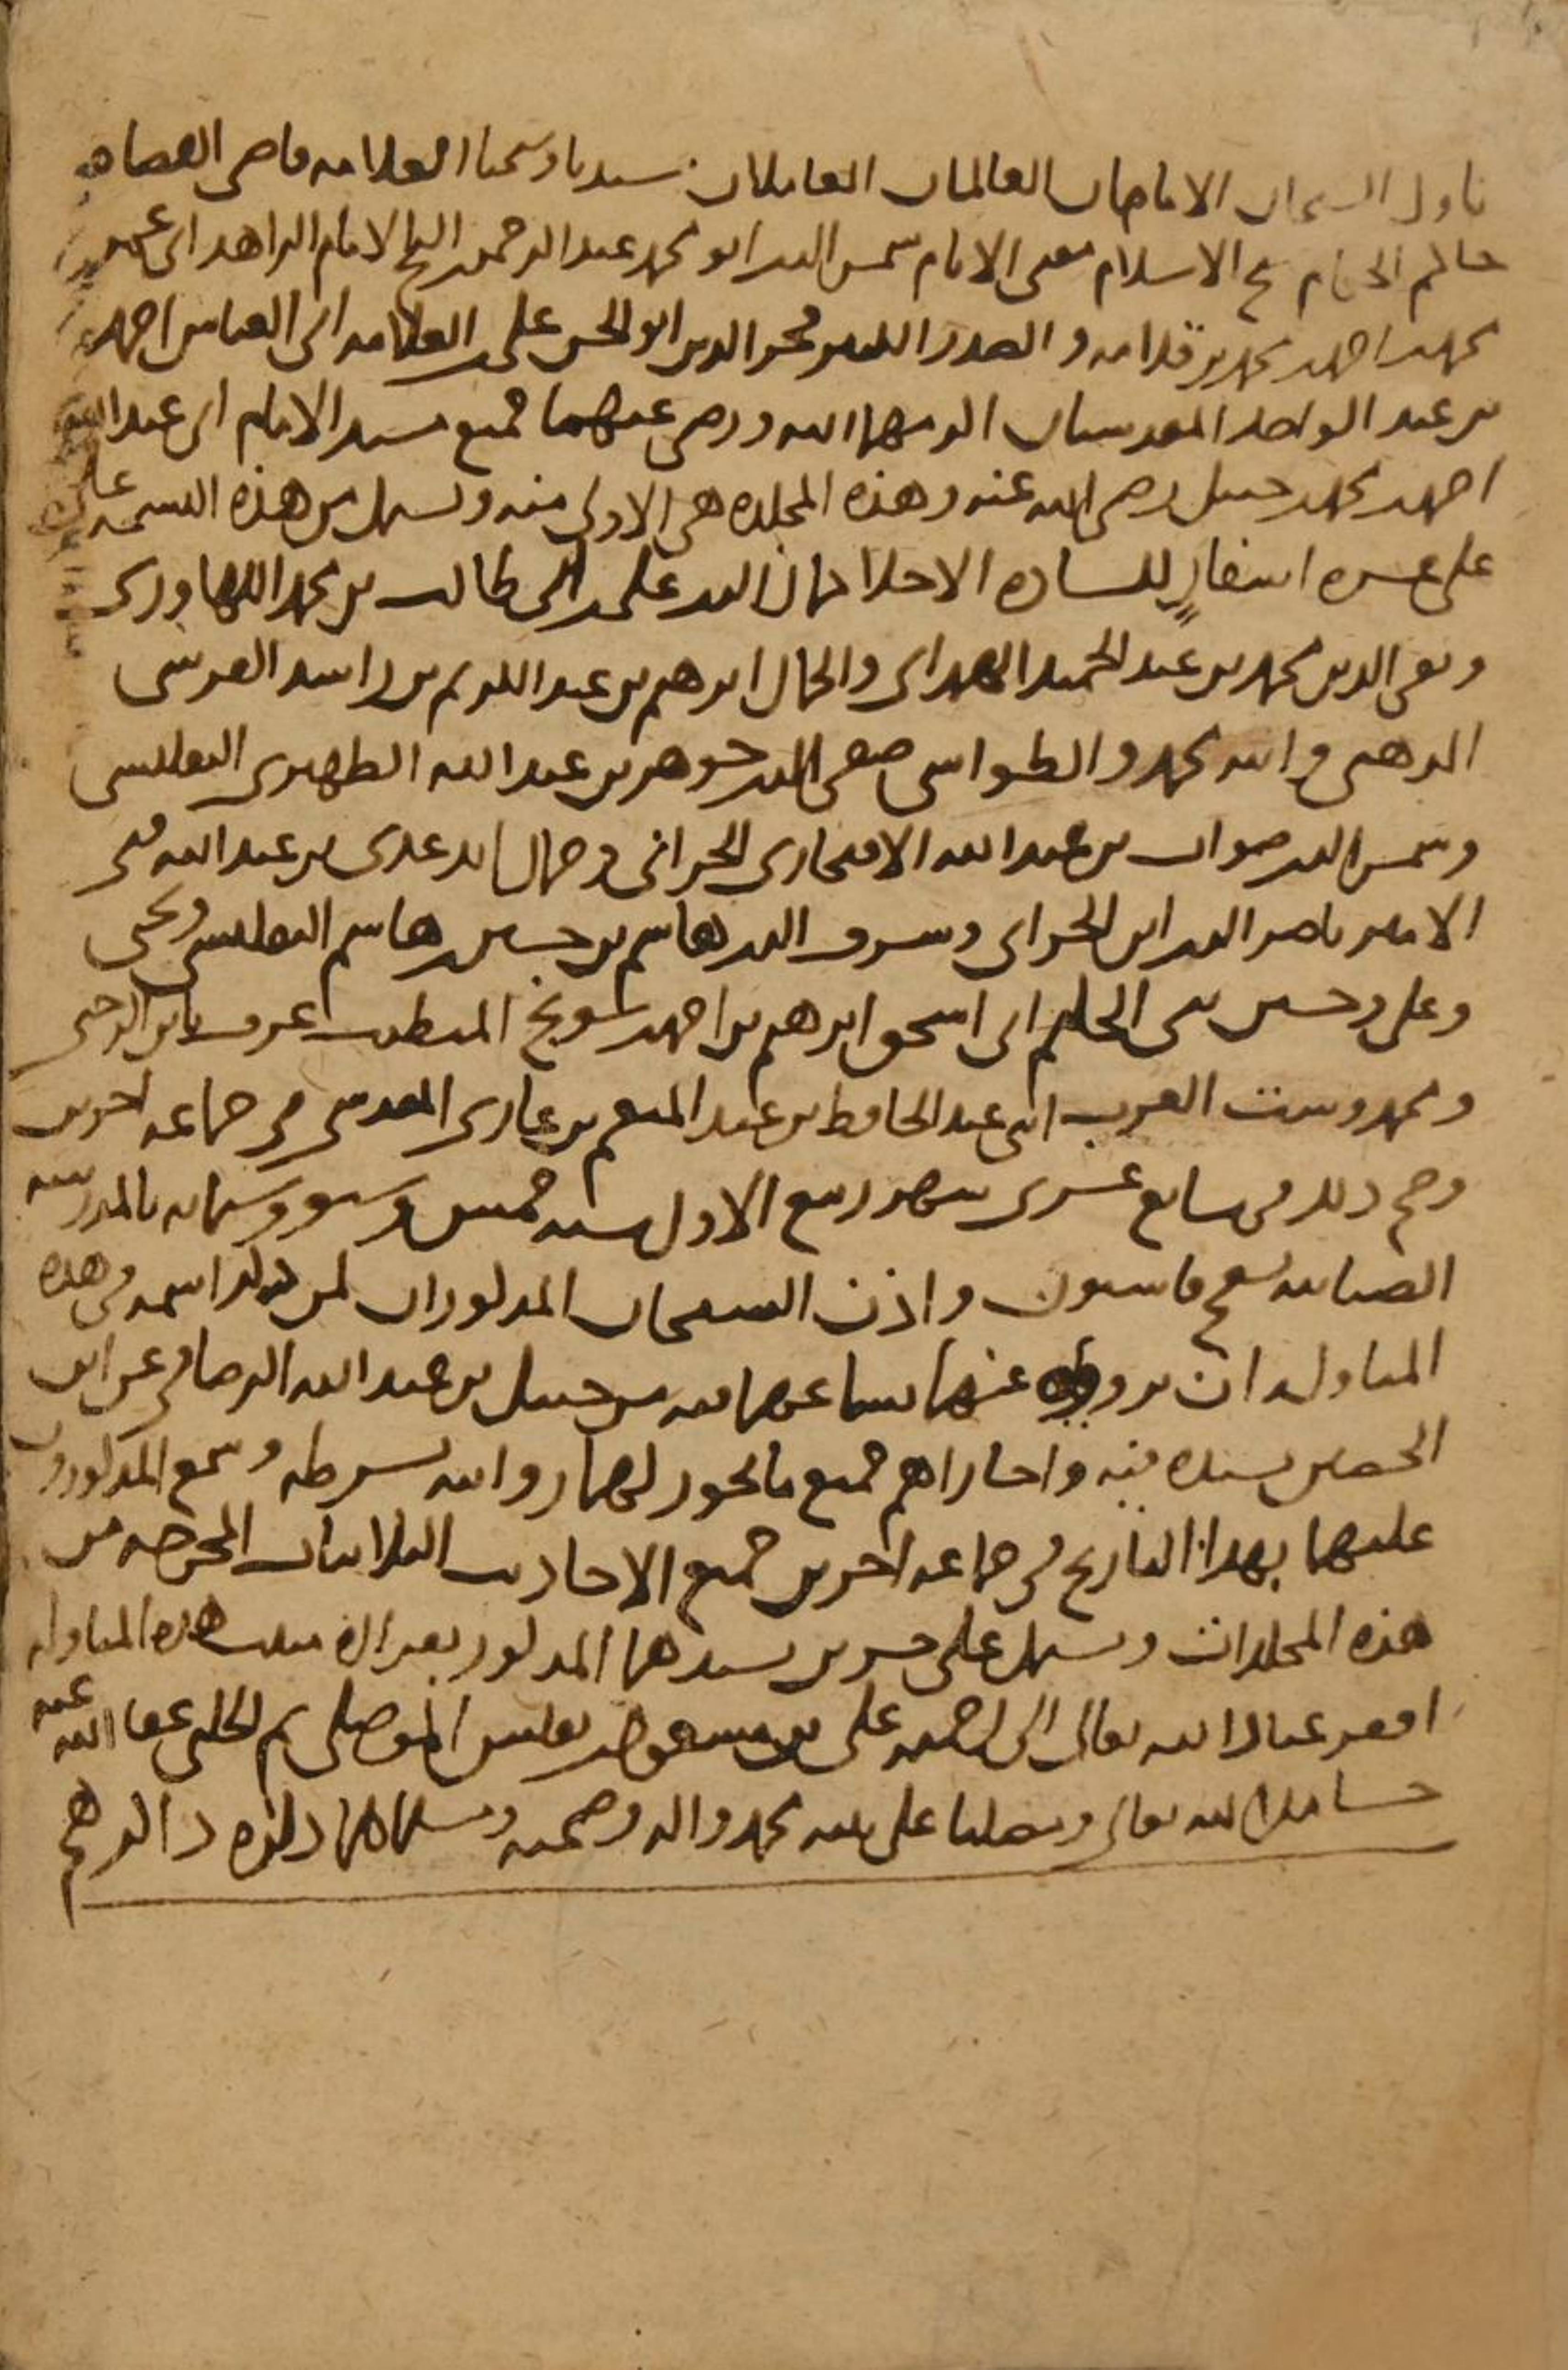 ناول الشيخان الامامان العالمان العاملان سيدنا وشيخنا العلامة قاضي القضاه
حاكم الحكام شيخ الاسلام مفتي الانام شمس الدين ابو محمد عبد الرحمن بن الشيخ الامام الزاهد ابي عمر
محمد بن احمد بن محمد بن قدامه و الصدر الكبير فخر الدين ابو الحسن علي بن العلامه ابي العباس احمد
بن عبد الواحد المقدسيان اكرمهما الله ورضي عنهما جميع مسند الامام ابي عبد الله
احمد بن محمد بن حنبل رضي الله عنه وهذه المجلده هي الاولى منه وتشتمل من هذه النسخه
على عشره اسفار للساده الاجلا علي بن ابي طالب بن محمد
وتقي الدين محمد بن عبد الحميد الهمداني والجمال ابرهيم بن عبد الكريم بن راشد القرشي
الذهبي وابنه محمد والطواشي صفي الدين جوهر بن عبد الله الظهيري التفليسي
وشمس الدين صواب بن عبد الله الافتخاري الحراني وجمال الدين عدي بن عبد الله فتى
الامير ناصر الدين ابن الحراني وشرف الدين هاشم بن حسين بن هاشم ويحيى
وعلي وحسين بني الحكيم ابي اسحق ابرهيم بن احمد بن المتطبب عرف بابن
ومحمد وست العرب ابني عبد الحافظ بن عبد المنعم بن غازي المقدسي في جماعه اخرين
وصح ذلك في سابع عشري شهر ربيع الاول سنه خمس وستماىه بالمدرسه
الضيائيه بسفح قاسيون واذن الشيخان المذكوران لمن ذكر اسمه في هذه
المناوله ان يرووه عنهما بسماعهما من حنبل بن عبد الله الرصافي عن ابن
الحصين بسنده فيه واجازا لهم جميع ما يجوز لهما روايته بشرطه وسمع المذكورون
عليهما بهذا التاريخ في جماعه اخرين جميع الاحاديث الثلاثيات المخرجه من
هذه المجلدات وتشتمل على جزين بسندهما المذكور بعد ان هذه المناوله
افقر عباد الله تعالى الى رحمته علي بن مسعود بن نفيس الموصلي ثم الحلبي عفا الله عنه
حامدا لله تعالى ومصليا على نبيه محمد واله وصحبه ومسلما